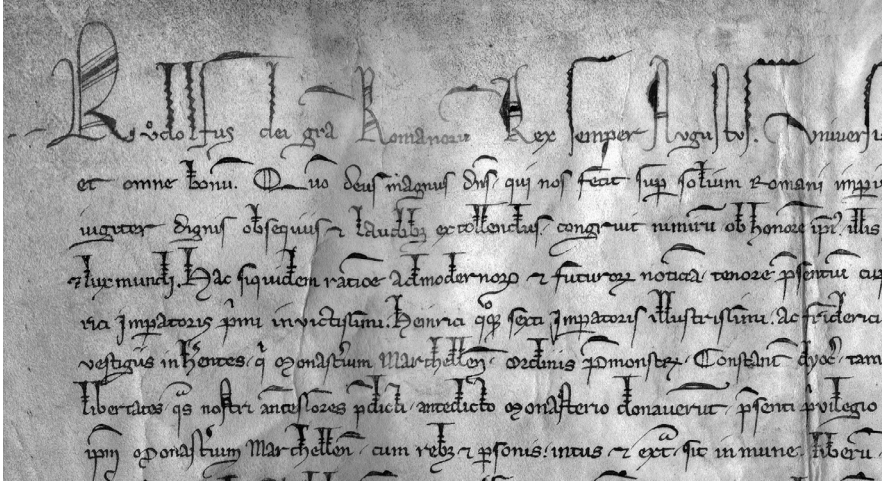 Rudolfus dei gra Romanoru Rex semper Augustus. Universi
et omne bonu. Quo deus magnus dns qui nos fecit sup solium Romani imperii
iugiter dignis obsequiis ⁊ laudibz extollendus congruit nimiru ob honore ipi illis
⁊ lux mundi. Hac siquidem ratioe ad modernorꝝ ⁊ futurorꝝ noticia tenore psentiu cup
rici Imperatoris pmi invictissimi. Heinrici qoqz sexti Imperatoris illustrissimi. Ac friderici
vestigiis inhentes qd Monastium Marchellen ordinis pmonstr. Constant dyoc. tam
libertates qs nostri antecessores pdicti antedicto Monasterio donaverut psenti pvilegio
ipm Monastium Marchellen cum rebz ⁊ psonis intus ⁊ exta sit inmune. liberu